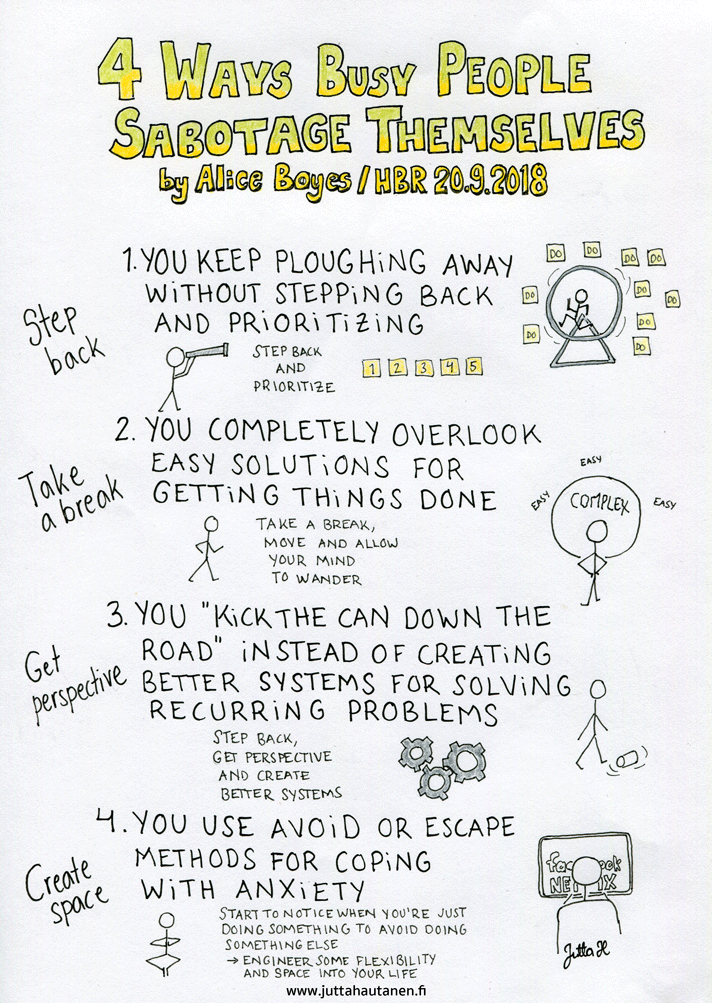 4 WAYS BUSY PEOPLE
SABOTAGE THEMSELVES
by Alice Boyes / HBR 20.9.2018
1. YOU KEEP PLOUGHING AWAY
WITHOUT STEPPING BACK
AND PRIORITIZING
Step
back
STEP BACK
AND
PRIORITIZE
1 2 3 4 5
DO DO DO DO
DO DO DO
DO DO
2. YOU COMPLETELY OVERLOOK
EASY SOLUTIONS FOR
GETTING THINGS DONE
Take
a break
TAKE A BREAK,
MOVE AND ALLOW
YOUR MIND
TO WANDER
EASY
EASY COMPLEX EASY
3. YOU "KICK THE CAN DOWN THE
ROAD" INSTEAD OF CREATING
BETTER SYSTEMS FOR SOLVING
RECURRING PROBLEMS
Get
perspective
STEP BACK,
GET PERSPECTIVE
AND CREATE
BETTER SYSTEMS
4. YOU USE AVOID OR ESCAPE
METHODS FOR COPING
WITH ANXIETY
Create
space
START TO NOTICE WHEN YOU'RE JUST
DOING SOMETHING TO AVOID DOING
SOMETHING ELSE
→ ENGINEER SOME FLEXIBILITY
AND SPACE INTO YOUR LIFE
Jutta H
www.juttahautanen.fi